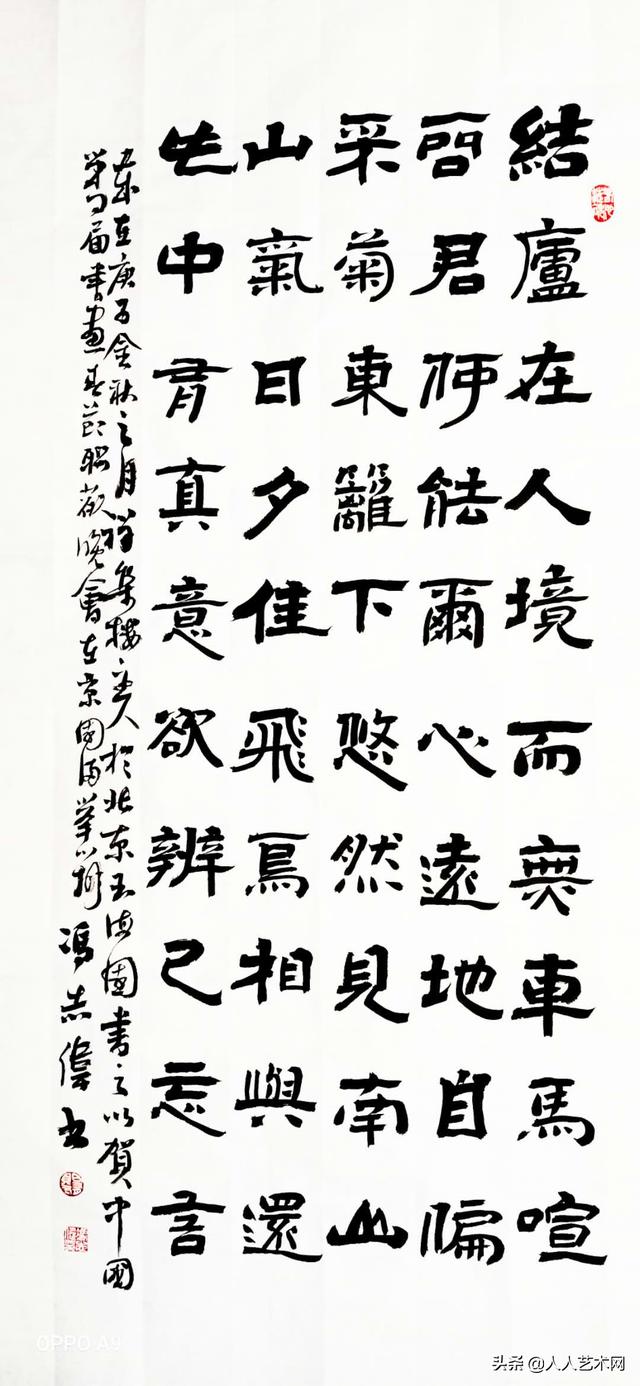 結廬在人境而無車馬喧
問君何能爾心遠地自偏
采菊東籬下悠然見南山
山氣日夕佳飛鳥相與還
此中有真意欲辨已忘言
歲在庚子金秋之月集樓主人於北京玉海園書之以賀中國
届書畫春节联歡晚會在京圆满举辦
馮志偉书
OPPO A9
头条 @人人艺术网